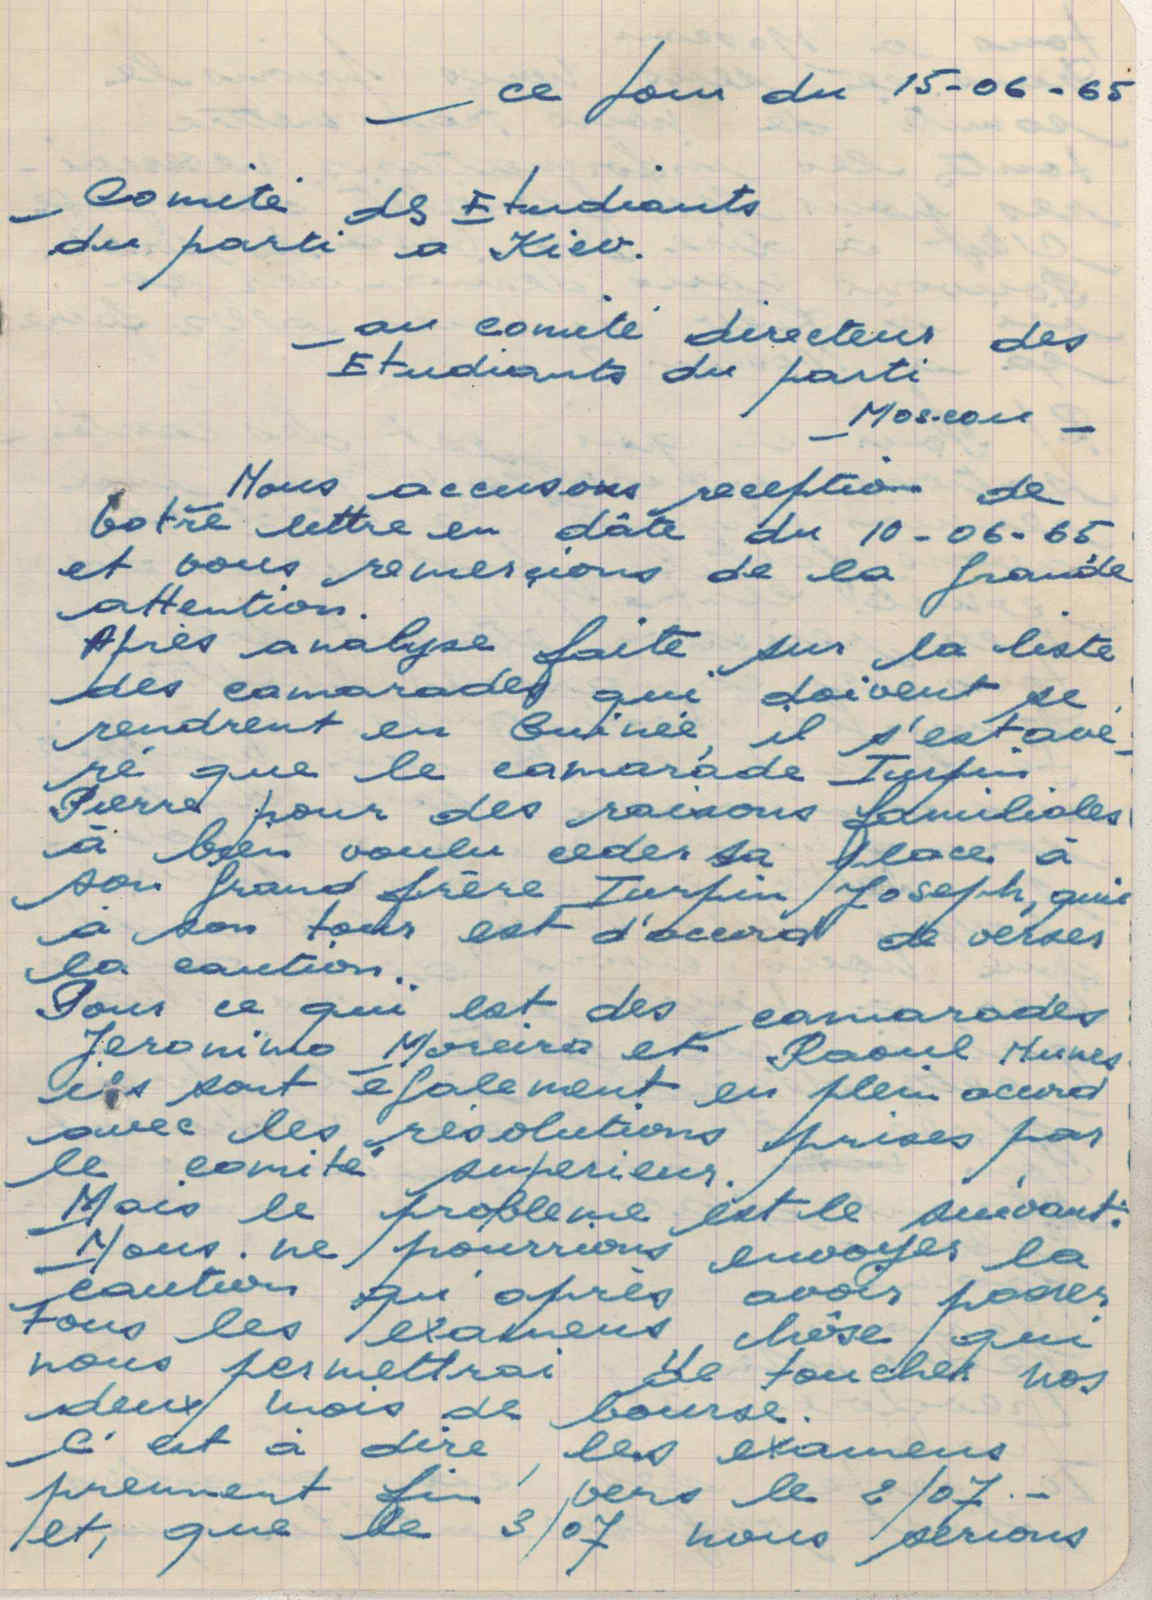 _ ce jour du 15-06-65
_ Comité des Etudiants
du parti a Kiev.
_ au comité directeur des
Etudiants du parti
_ Moscou _
Nous accusons reception de
votre lettre en dâte du 10-06-65
et vous remerçions de la grande
attention.
Après analyse faite sur la liste
des camarades qui doivent se
rendrent en Guinée, il s'est avé-
ré que le camarade Turpin
Pierre pour des raisons familiales
à bien voulu ceder sa place à
son grand frère Turpin Joseph, qui
à son tour est d'accord de verser
la caution.
Pour ce qui est des camarades
Jeronimo Moreira et Raoul Nunes
ils sont également en plein accord
avec les résolutions prises par
le comité superieur.
Mais le probleme est le suivant:
_ Nous ne pourrions envoyer la
caution qu'après avoir passer
tous les examens, chôse qui
nous permettrai de toucher nos
deux mois de bourse.
C'est à dire, les examens
prennent fin vers le 2/07 -
et, que le 3/07 nous serions